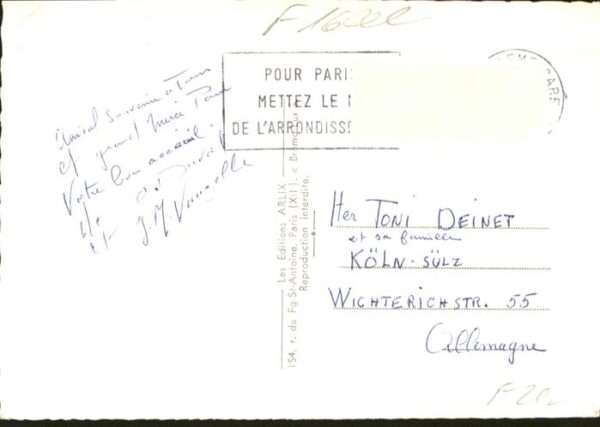 F 1622
POUR PARIS
METTEZ LE N
DE L'ARRONDISSE
GARE
Amical souvenir a Tous
et grand merci Pour
Votre bon accueil.
et J.M.
Les Editions ARLIX
154, r. du Fg-St-Antoine, Paris (XII)
Reproduction interdite.
Her TONI DEINET
et sa famille
KÖLN-SÜLZ
WICHTERICHSTR. 55
Allemagne